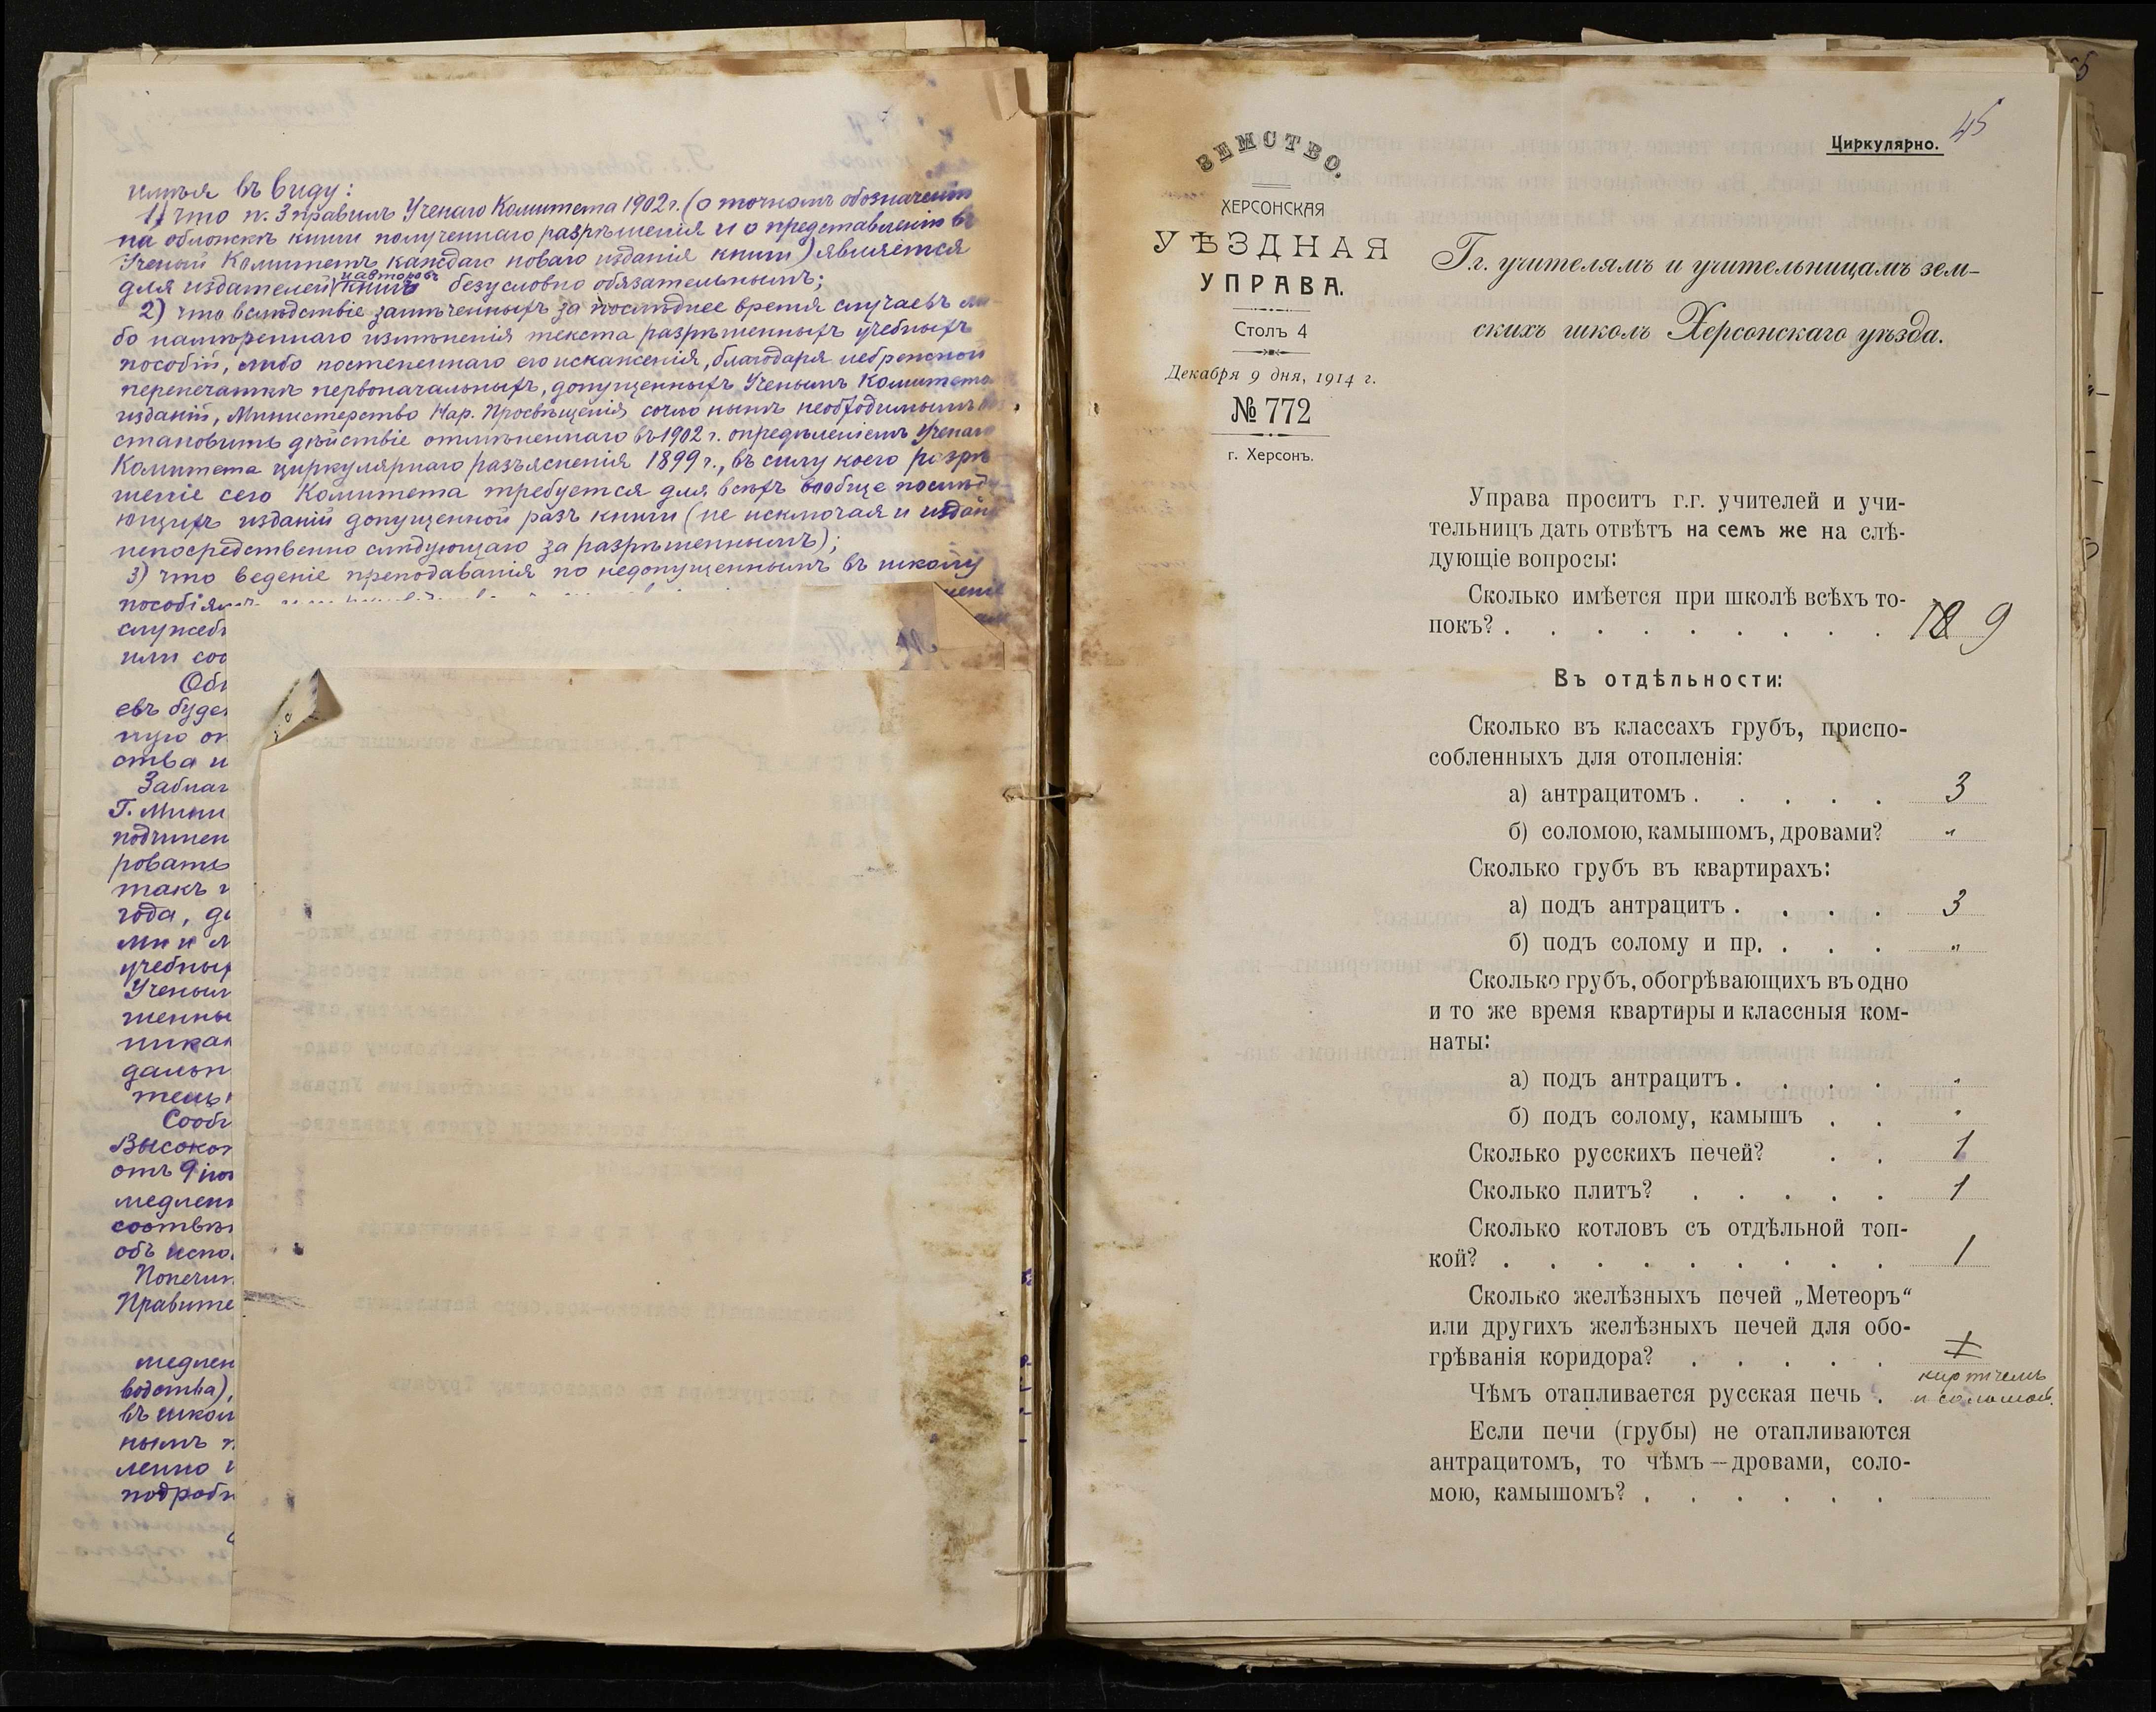 имѣя въ виду:
1) что п. 3 правилъ Ученаго Комитета 1902 г. (о точномъ обозначеніи
на обложкѣ книги полученнаго разрѣшенія и о представленіи въ
Ученый Комитетъ каждаго новаго изданія книги) является
и авторовъ
для издателей книгъ безусловно обязательнымъ;
2) что вслѣдствіе замѣченныхъ за послѣднее время случаевъ ли-
бо намѣреннаго измѣненія текста разрѣшенныхъ учебныхъ
пособій, либо постепеннаго его искаженія, благодаря небрежной
перепечаткѣ первоначальныхъ, допущенныхъ Ученымъ Комитето
изданій, Министерство Нар. Просвѣщенія сочло нынѣ необходимымъ воз
становить дѣйствіе отмѣненнаго въ 1902 г. опредѣленіемъ Ученаго
Комитета циркулярнаго разъясненія 1899 г., въ силу коего разрѣ
шеніе сего Комитета требуется для всѣхъ вообще послѣду-
ющихъ изданій допущенной разъ книги (не исключая и издан
непосредственно слѣдующаго за разрѣшеннымъ);
3) что веденіе преподаванія по недопущеннымъ въ школу
пособіямъ
служеб
или соо
евъ буде
ную оп
ства и
Заблаг
Г. Мини
подчинен
ровать
такъ и
года, д
ми и м
учебных
Ученым
шенны
никак
дальн
Сооб
Высоко
отъ 9 iю
медлен
соотвѣт
объ испо
Попечи
Правите
медлен
водства),
въ школ
нымъ п
ленно и
подробн
45
Циркулярно.
ЗЕМСТВО.
ХЕРСОНСКАЯ
УѢЗДНАЯ
УПРАВА.
Столъ 4
Декабря 9 дня, 1914 г.
№ 772
г. Херсонъ.
Г.г. учителямъ и учительницамъ зем-
скихъ школъ Херсонскаго уѣзда.
Управа проситъ г.г. учителей и учи-
тельницъ дать отвѣтъ на семъ же на слѣ-
дующіе вопросы:
Сколько имѣется при школѣ всѣхъ то-
покъ? . . . . . . . . . 9
Въ отдѣльности:
Сколько въ классахъ грубъ, приспо-
собленныхъ для отопленія:
а) антрацитомъ . . . . . 3
б) соломою, камышомъ, дровами? „
Сколько грубъ въ квартирахъ:
а) подъ антрацитъ . . . . 3
б) подъ солому и пр. . . . „
Сколько грубъ, обогрѣвающихъ въ одно
и то же время квартиры и классныя ком-
наты:
а) подъ антрацитъ . . . . „
б) подъ солому, камышъ . . „
Сколько русскихъ печей? . . 1
Сколько плитъ? . . . . . 1
Сколько котловъ съ отдѣльной топ-
кой? . . . . . . . . . 1
Сколько желѣзныхъ печей „Метеоръ“
или другихъ желѣзныхъ печей для обо-
грѣванія коридора? . . . . .
кирпичемъ
Чѣмъ отапливается русская печь . и соломой.
Если печи (грубы) не отапливаются
антрацитомъ, то чѣмъ — дровами, соло-
мою, камышомъ? . . . . . .